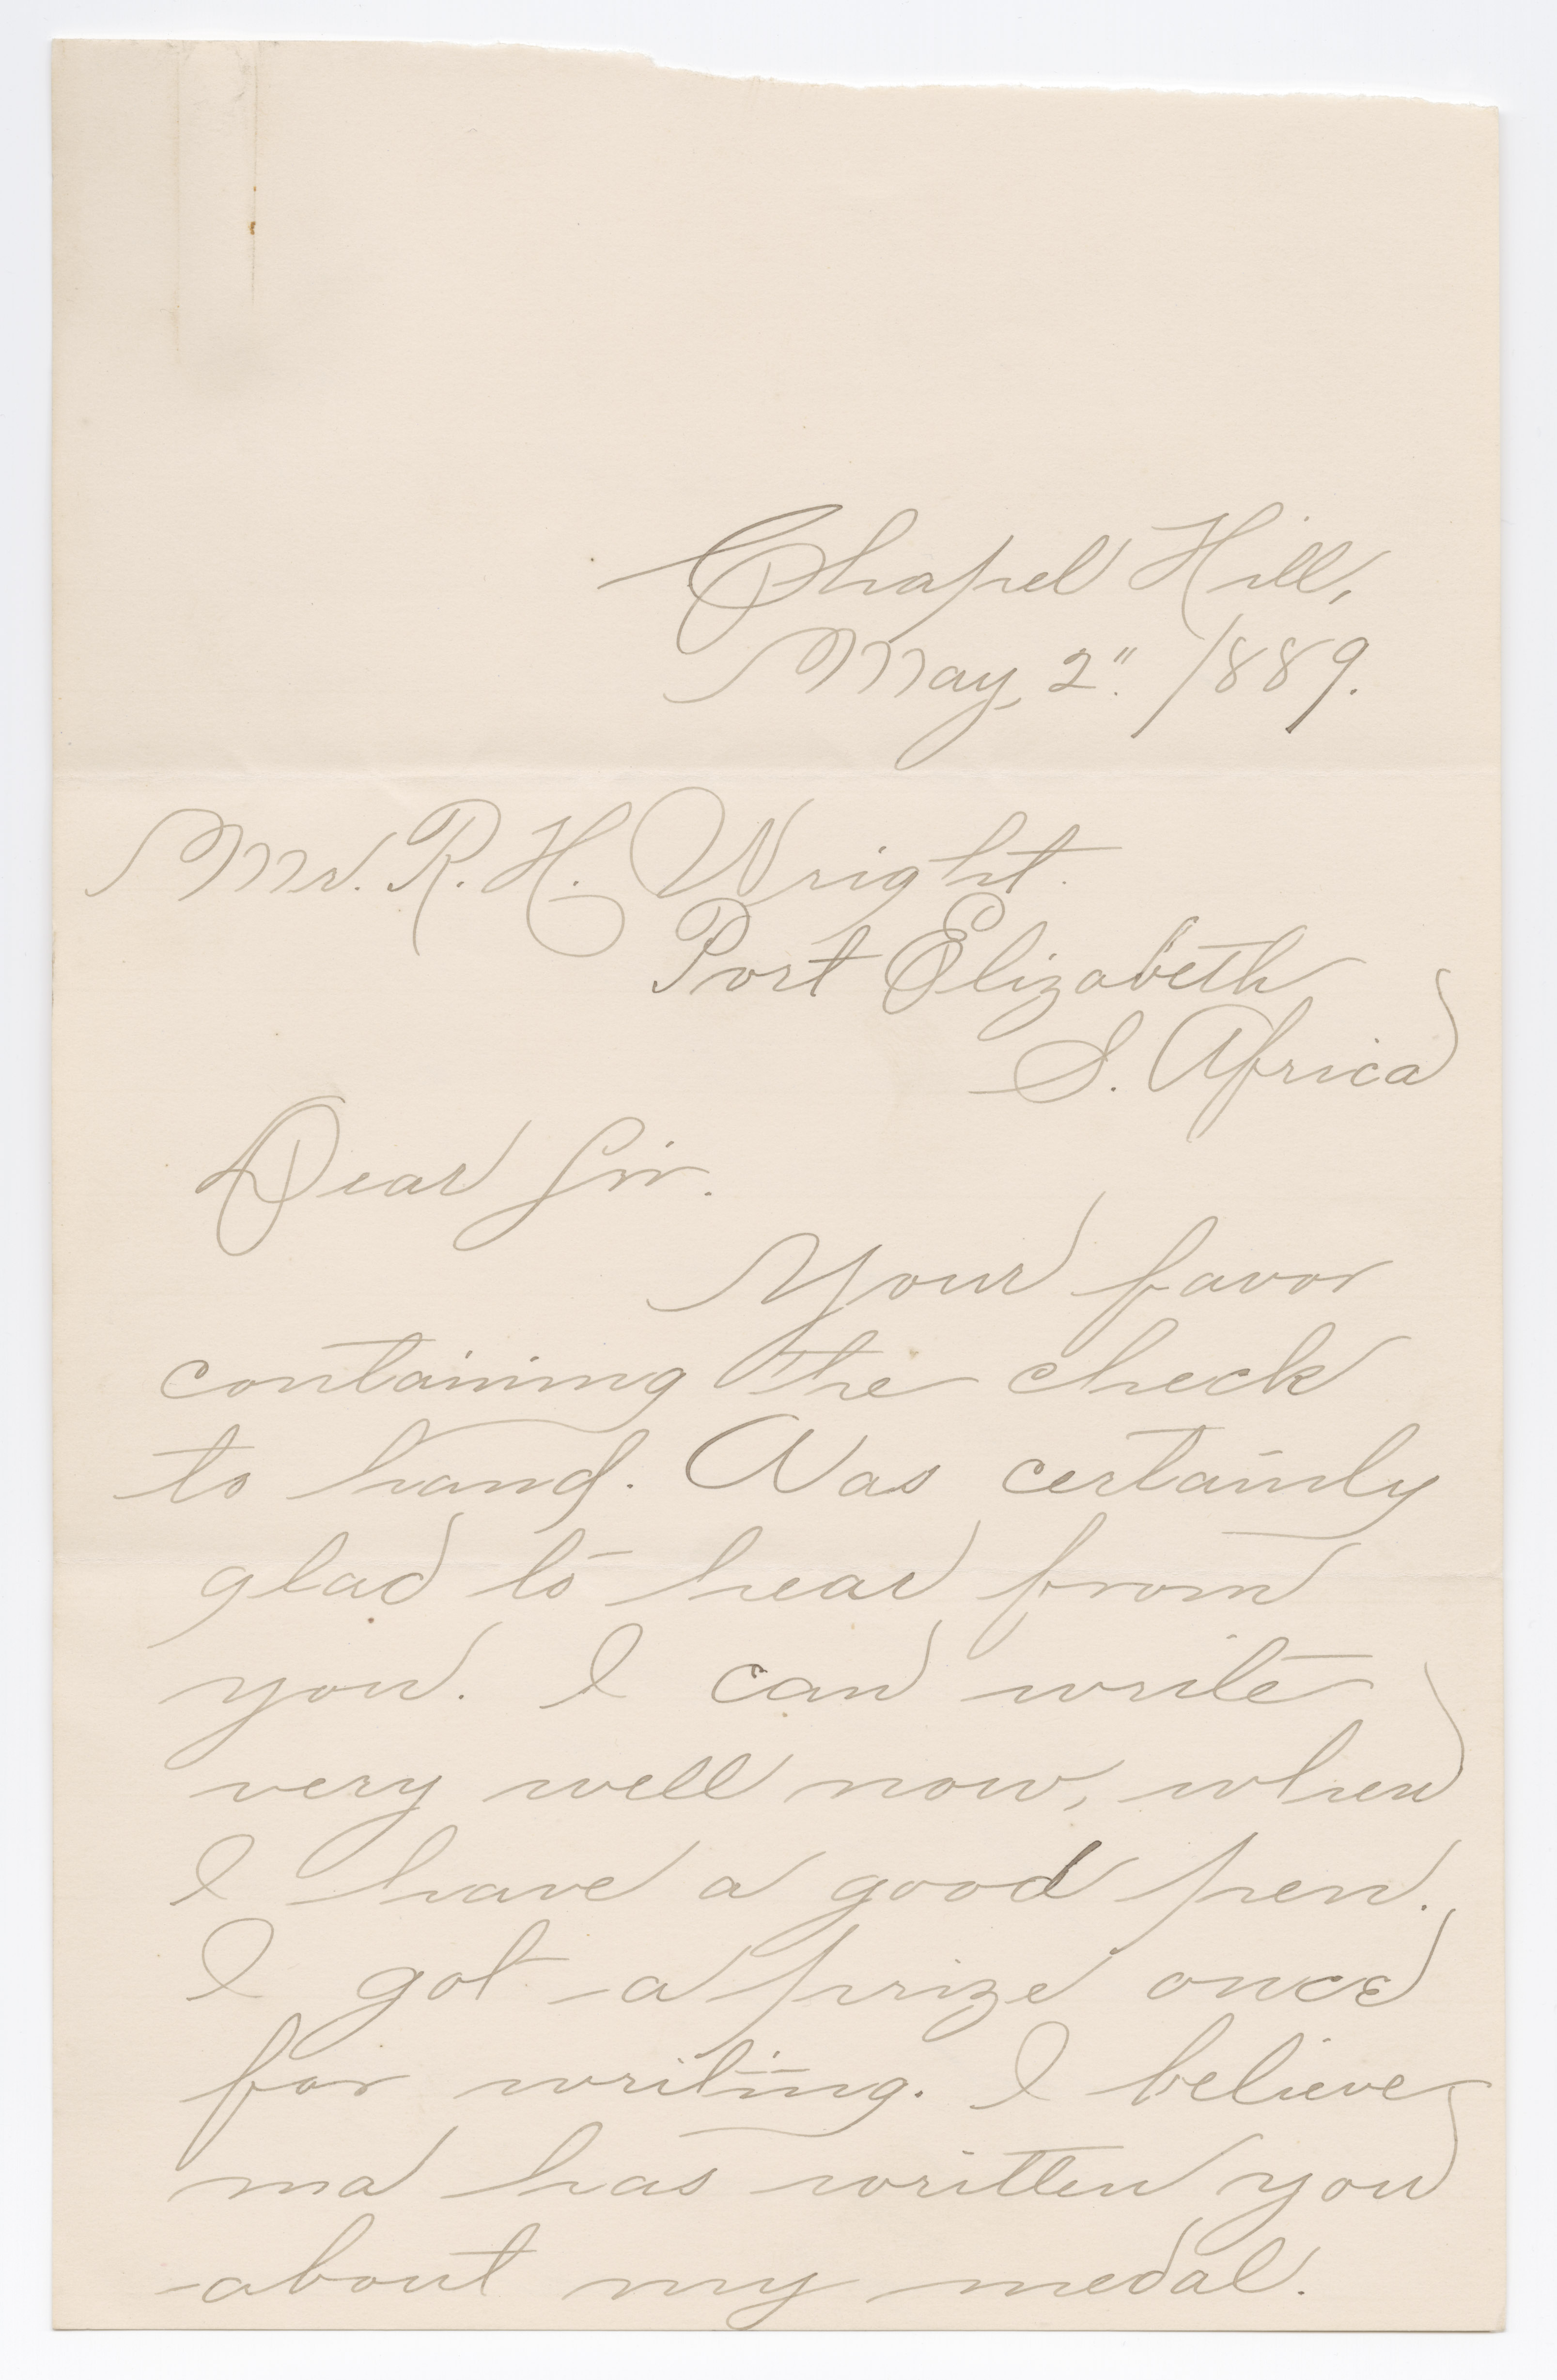 Chapel Hill,
May, 2". 1889.
Mr. R. H. Wright.
Port Elizabeth
S. Africa
Dear Sir.
Your favor
containing the check
to hand. Was certainly
glad to hear from
you. I can write
very well now, when
I have a good pen.
I got a prize once
for writing. I believe
ma has written you
about my medal.